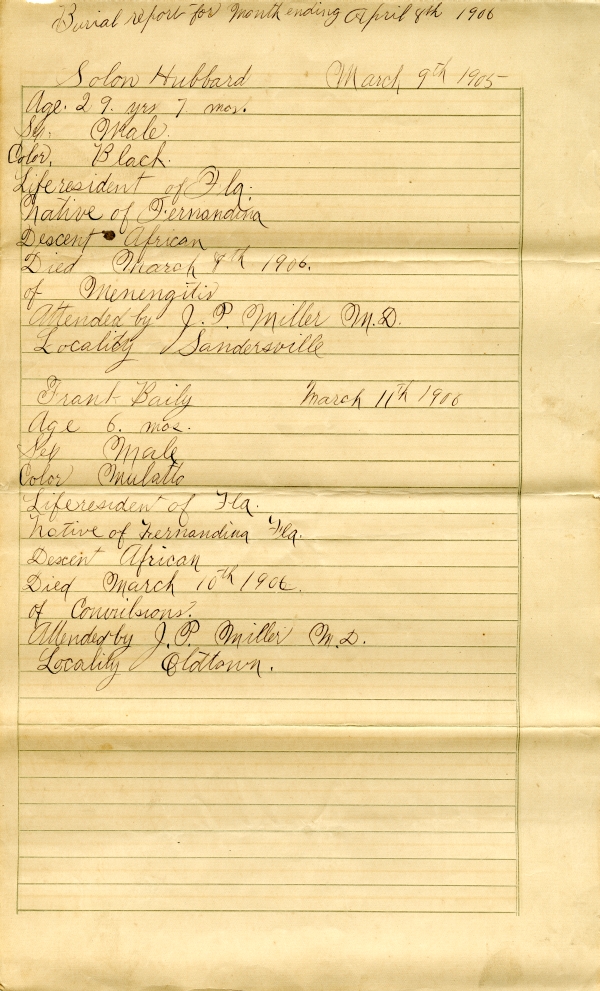 Burial report for Month ending April 8th 1906
Solon Hubbard March 9th 1905
Age. 29. yrs 7. mos.
Sex. Male.
Color. Black.
Liferesident of Fla.
Native of Fernandina
Descent African
Died March 8th 1906.
of Menengitis
Attended by J. P. Miller M.D.
Locality Sandersville
Frank Baily March 11th 1906
Age 6. mos.
Sex Male
Color Mulatto
Liferesident of Fla.
Native of Fernandina Fla.
Descent African
Died March 10th 1906.
of Convulsions.
Attended by J. P. Miller M.D.
Locality Oldtown.